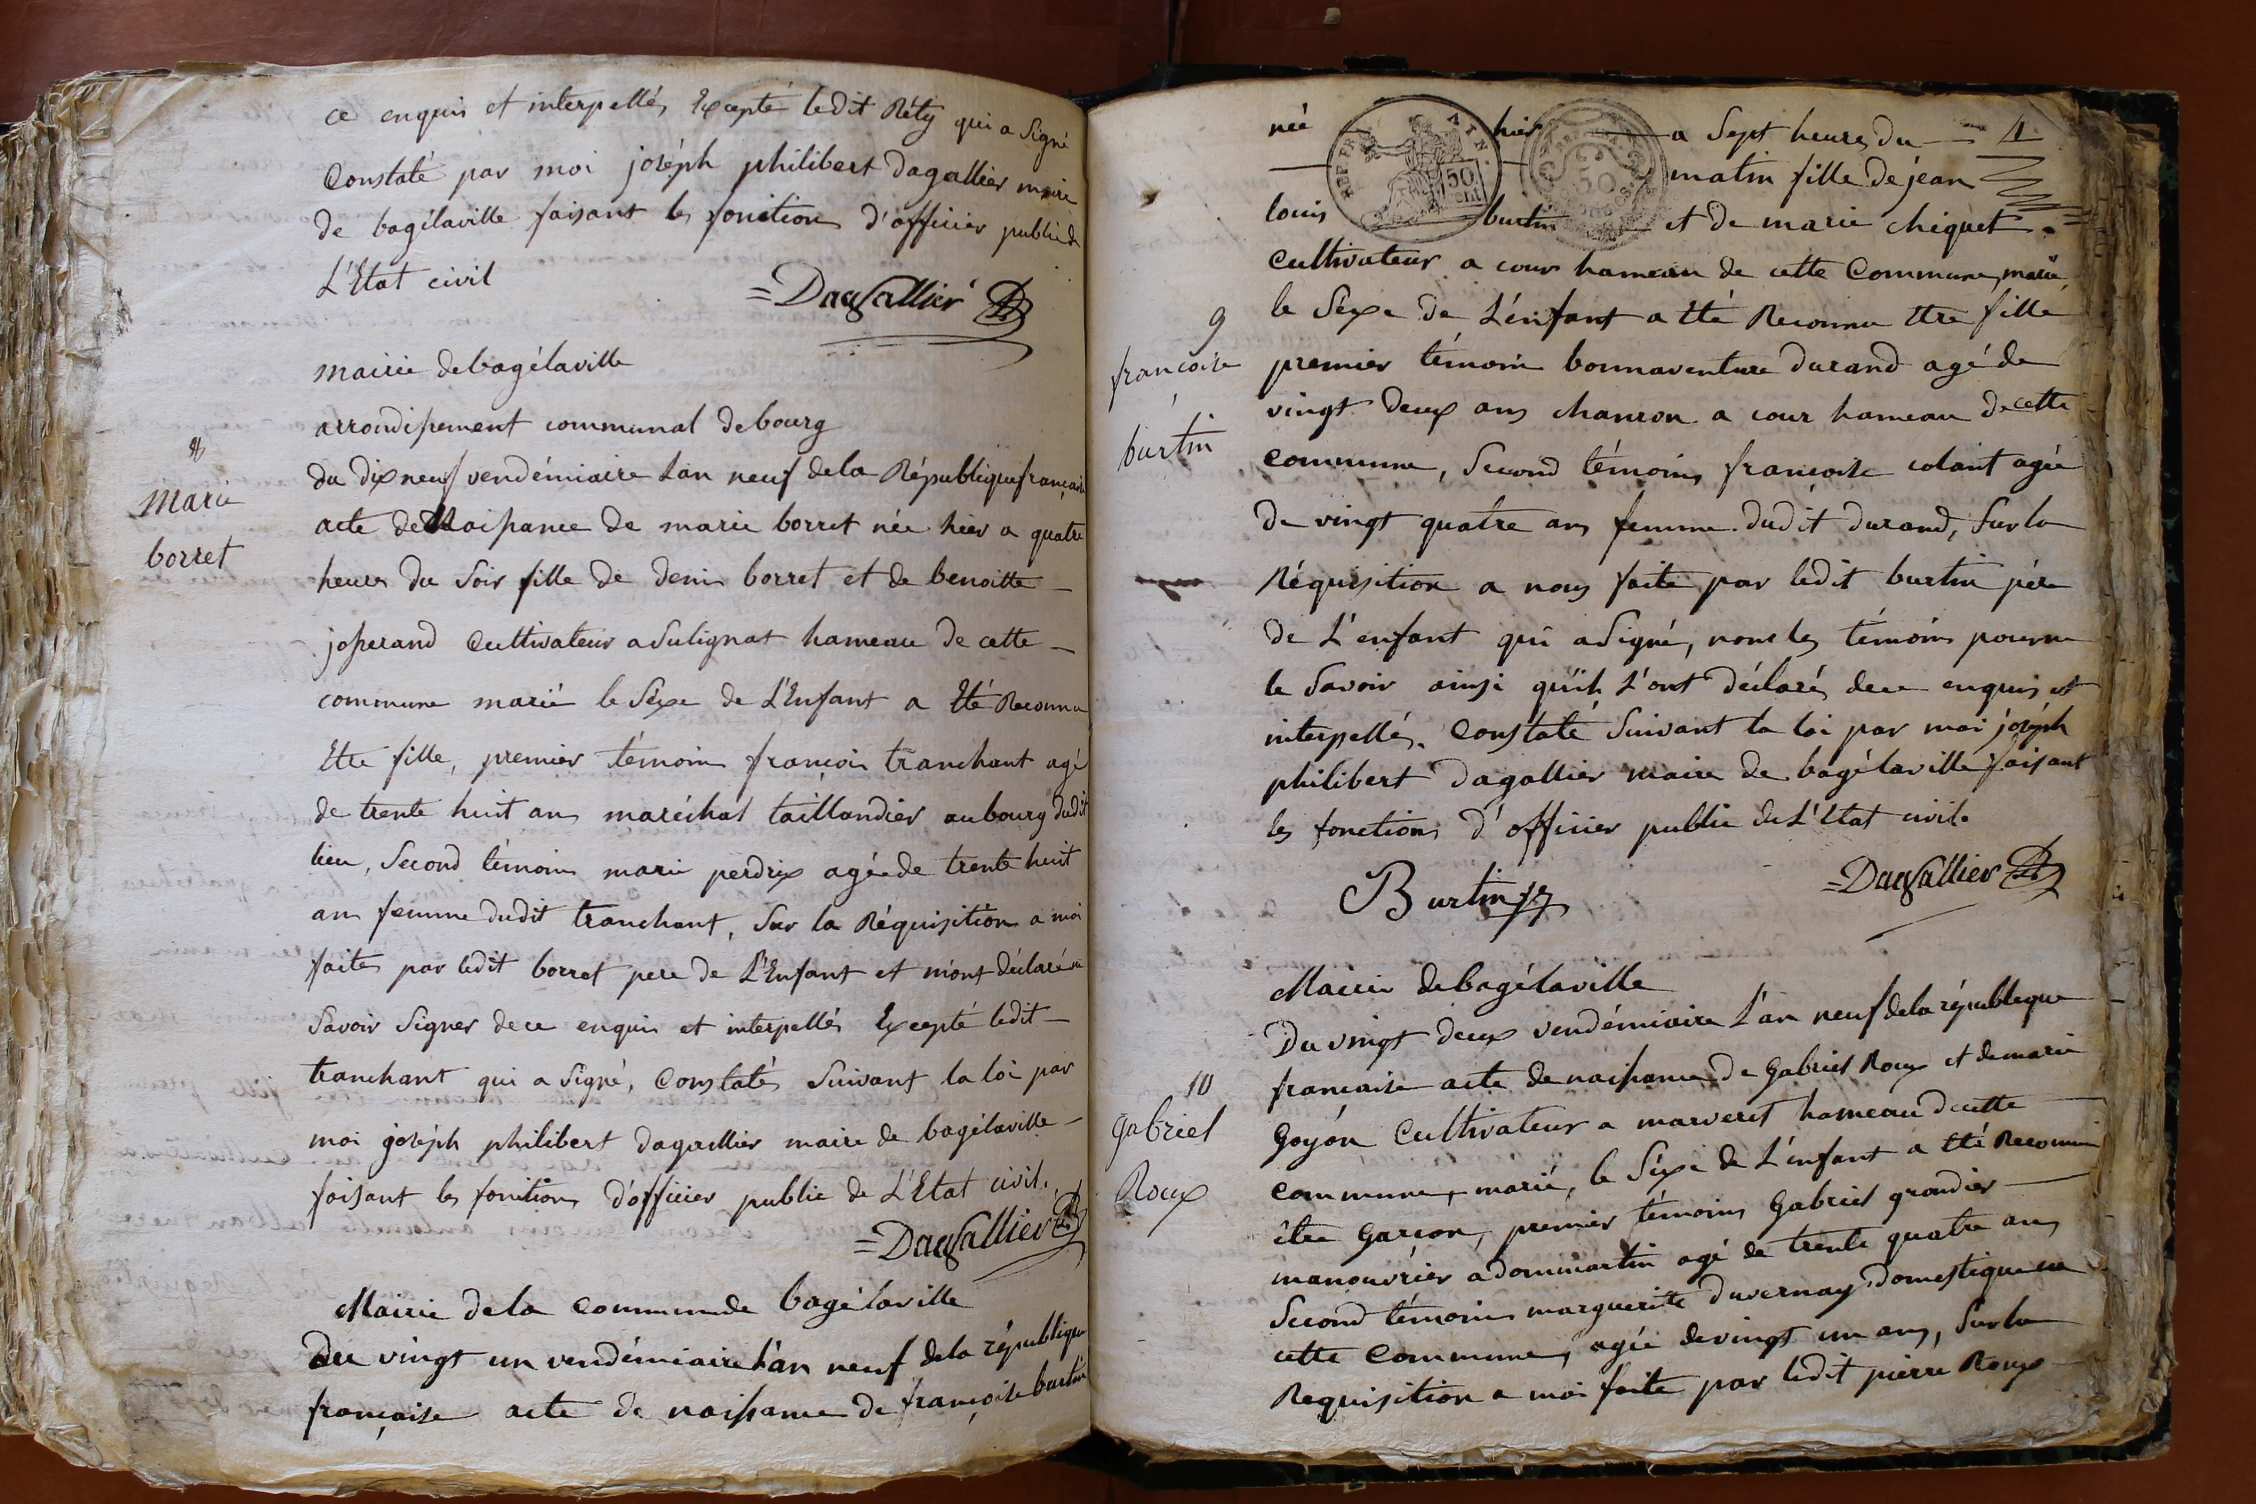 ce enquis et interpellés Excepté ledit Réty qui a Signé
Constaté par moi joséph philibert dagallier maire
de bagélaville faisant les fonction d'officier public de
L'Etat civil
=Dagallier
mairie de bagélaville
arrondissement communal de bourg
8
Marie
borret
du dix neuf vendémiaire L'an neuf de la République française
acte de Naissance de marie borret née hier a quatre
heures du Soir fille de denis borret et de benoitte
josserand Cultivateur a Sulignat hameau de cette
commune marié le Séxe de L'Enfant a Eté Reconnu
Etre fille, premier témoin françois tranchant agé
de trente huit ans maréchal taillandier au bourg dudit
lieu, Second témoins marie perdrix agée de trente huit
ans femme dudit tranchant, Sur la Réquisition a moi
faites par ledit borret pere de L'Enfant et m'ont déclaré ne
Savoir Signer de ce enquis et interpellés Excepté ledit
tranchant qui a Signé, Constatés Suivant la loi par
moi joséph philibert dagallier maire de bagélaville
faisant les fonctions d'officier public de L'Etat civil.
=Dagallier
Mairie de la commune de bagélaville
Du vingt un vendémiaire L'an neuf de la république
française acte de naissance de françoise burtin
née hier a Sept heures du 4
REP. FRA. 50 cent
matin fille de jéan
louis burtin et de marie chiquet
Cultivateur a cour hameau de cette Commune, marié,
le Séxe de L'énfant a Eté Reconnu Etre fille
9
françoise
burtin
premier témoin bonnaventure durand agé de
vingt deux ans chanron a cour hameau de cette
commune, Second témoins françoise colant agée
de vingt quatre ans femme dudit durand, Sur la
Réquisition a nous faite par ledit burtin père
de L'enfant qui a Signé, non les témoins pour ne
le Savoir ainsi qu'ils L'ont déclarés de ce enquis et
interpellés. Constaté Suivant la loi par moi joséph
philibert dagallier maire de bagélaville faisant
les fonctions d'officier public de L'Etat civil.
Burtin
=Dagallier
Mairie de bagélaville
Du vingt deux vendémiaire L'an neuf de la république
10
gabriel
Roux
française acte de naissance de Gabriel Roux et de marie
Goyón Cultivateur a marveret hameau de cette
commune, marié, le Séxe de L'enfant a Eté Reconnu
être Garçon, premier témoins Gabriel grandier
manouvrier a dommartin agé de trente quatre ans
Second témoins marguerite duvernay domestique en
cette Commune, agée de vingt un ans, Sur la
Requisition a moi faite par ledit pierre Roux